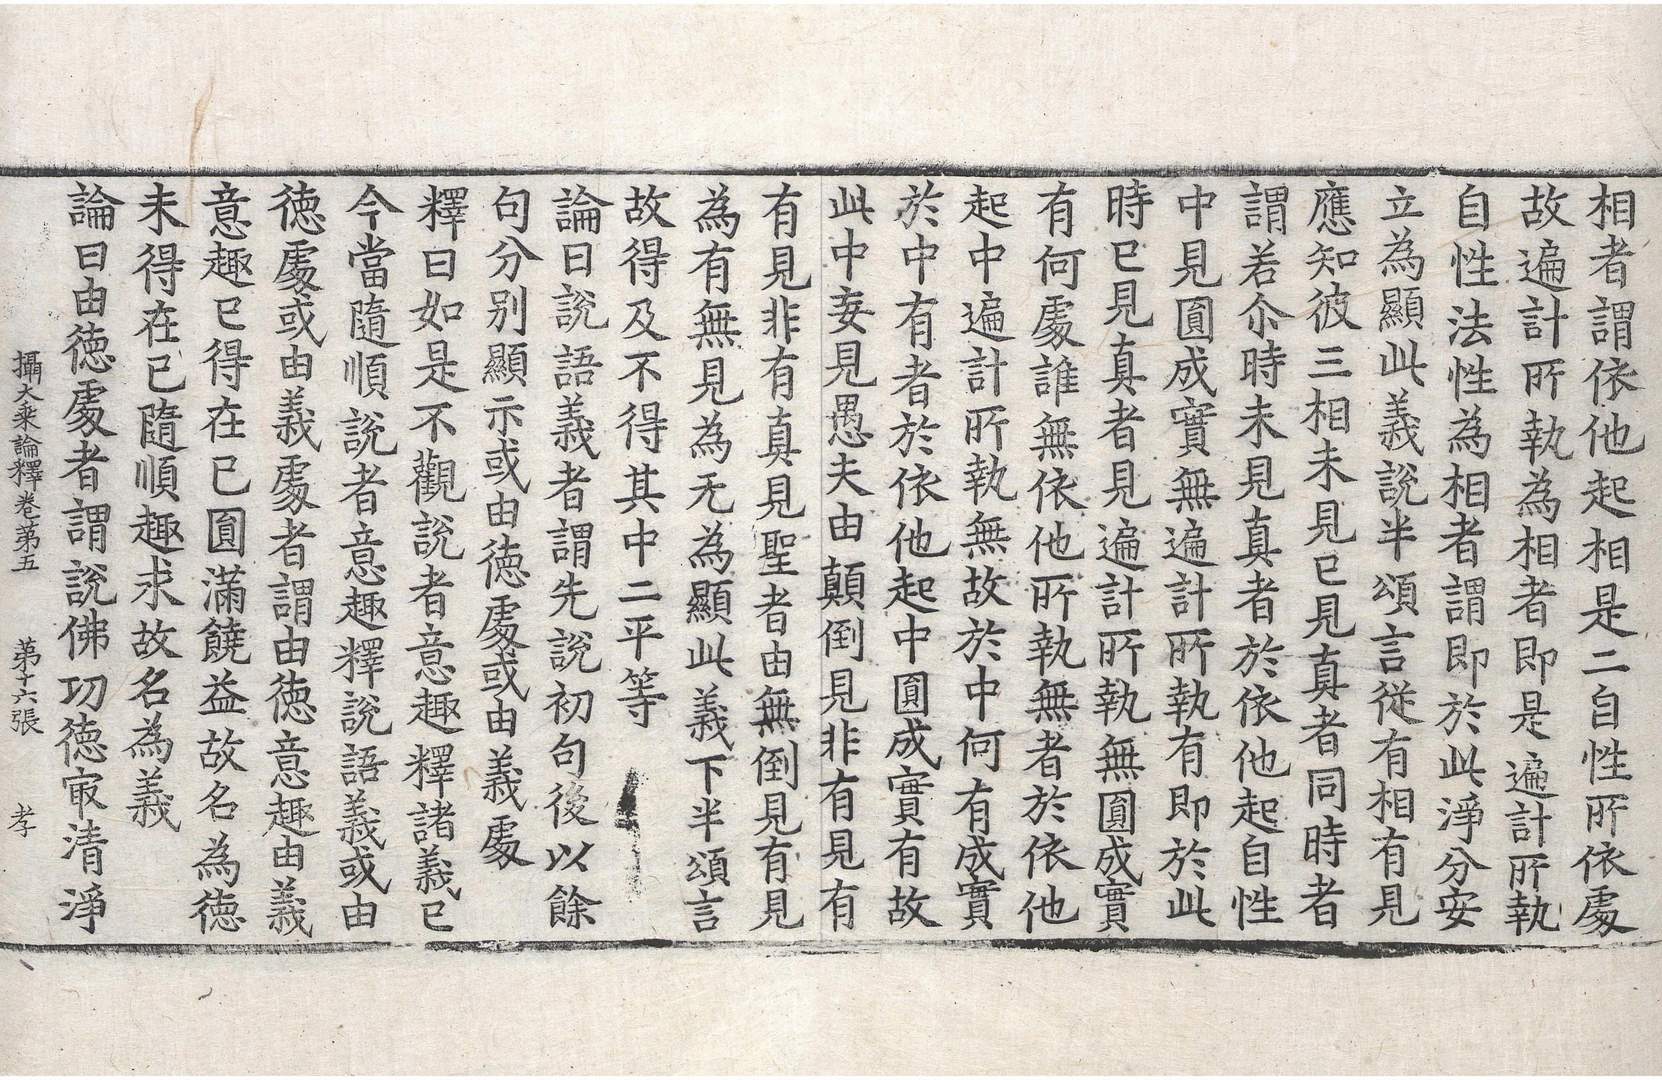 相者謂依他起相是二自性所依處
故遍計所執為相者即是遍計所執
自性法性為相者謂即於此淨分安
立為顯此義說半頌言從有相有見
應知彼三相未見已見真者同時者
謂若尒時未見真者於依他起自性
中見圓成實無遍計所執有即於此
時已見真者見遍計所執無圓成實
有何處誰無依他所執無者於依他
起中遍計所執無故於中何有成實
於中有者於依他起中圓成實有故
此中妄見愚夫由顛倒見非有見有
有見非有真見聖者由無倒見有見
為有無見為无為顯此義下半頌言
故得及不得其中二平等
論曰說語義者謂先說初句後以餘
句分別顯示或由德處或由義處
釋曰如是不觀說者意趣釋諸義已
今當隨順說者意趣釋說語義或由
德處或由義處者謂由德意趣由義
意趣已得在已圓滿饒益故名為德
未得在已隨順趣求故名為義
論曰由德處者謂說佛功德㝡清淨
攝大乘論釋卷第五　第十六張　孝